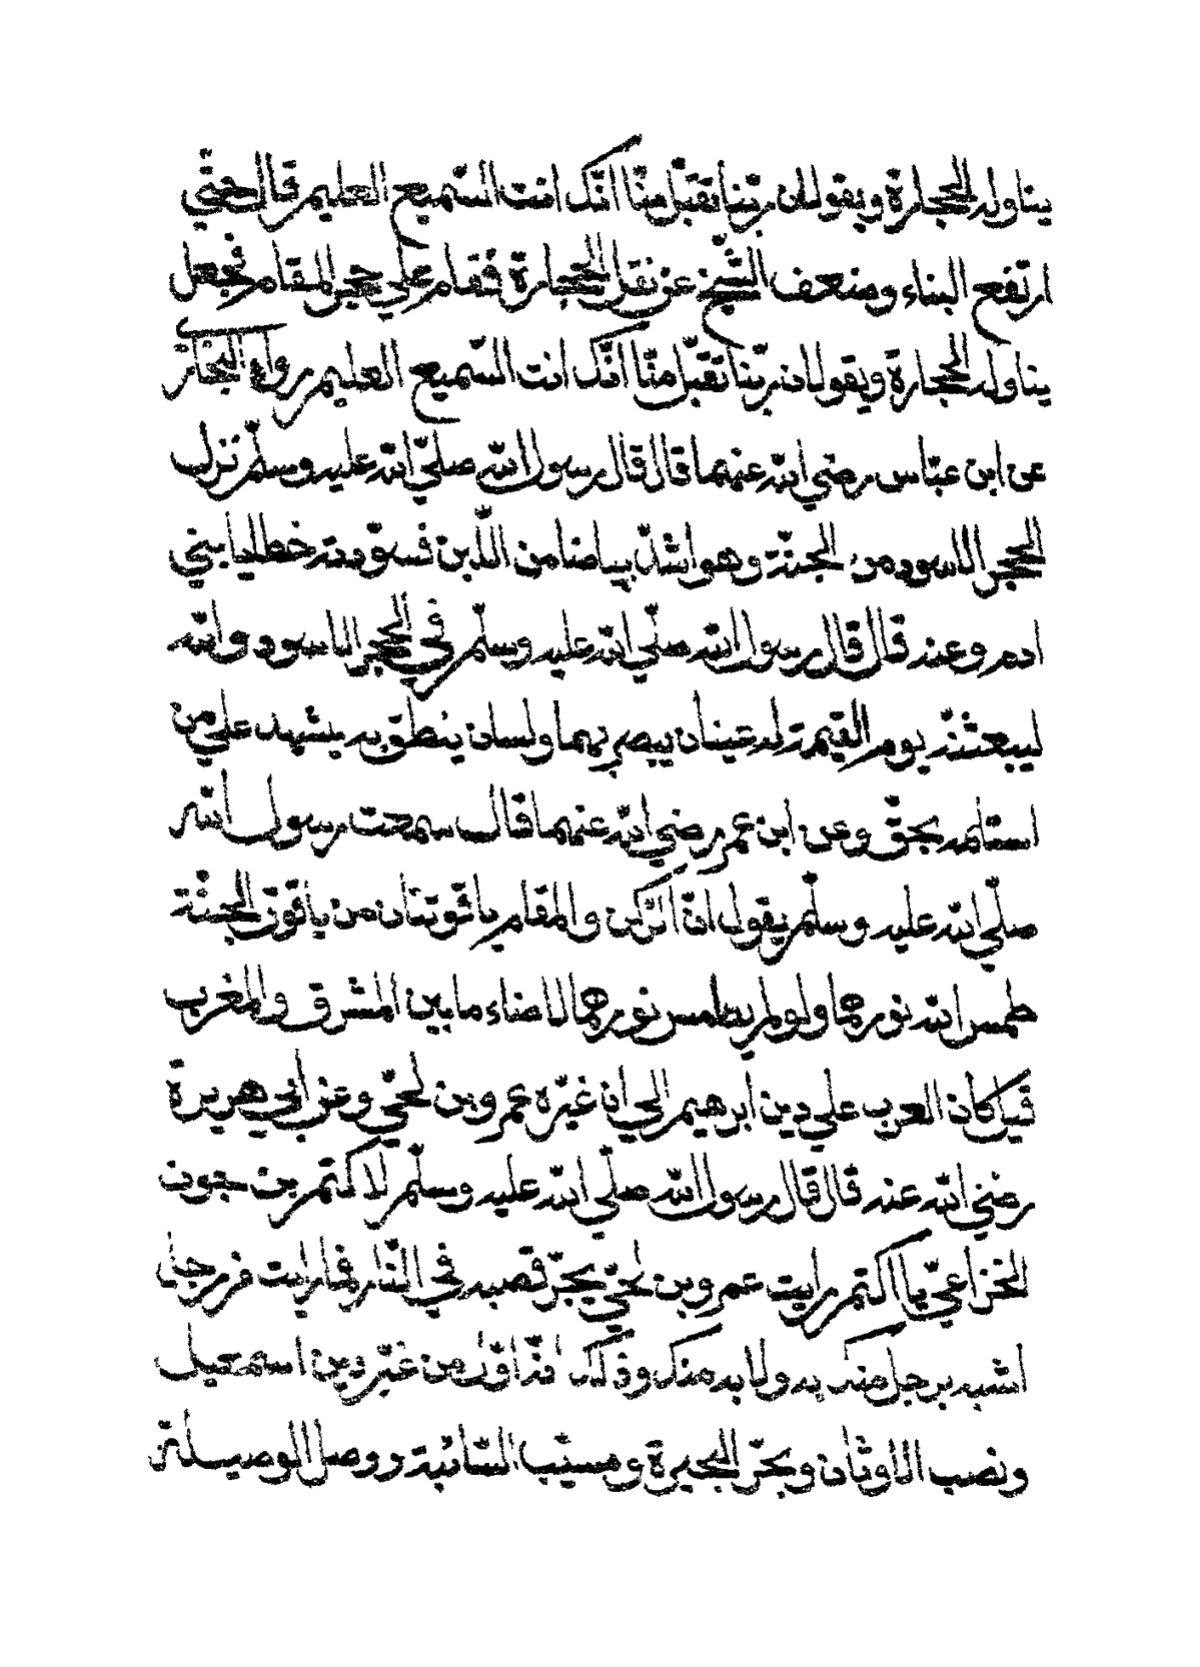 يناوله الحجارة ويقولان ربّنا تقبّل منّا انّك انت السّميع العليم قال حتّي
ارتفع البناء وضعف الشّيخ عن نقل الحجارة فقام علي حجر المقام فجعل
يناوله الحجارة ويقولان ربّنا تقبّل منّا انّك انت السّميع العليم رواه البخاريّ
عن ابن عبّاس رضي اللّه عنهما قال قال رسول اللّه صلّي اللّه عليه وسلّم نزل
الحجر الاسود من الجنّة وهو اشدّ بياضا من اللّبن فسوّدته خطايا بني
ادم وعنه قال قال رسول اللّه صلّي اللّه عليه وسلّم في الحجر الاسود واللّه
ليبعثنّه يوم القيمة له عينان يبصر بهما ولسان ينطق به يشهد علي من
استلمه بحقّ وعن ابن عمر رضي اللّه عنهما قال سمعت رسول اللّه
صلّي اللّه عليه وسلّم يقول انّ الرّكن والمقام ياقوتتان من ياقوت الجنّة
طمس اللّه نورهما ولو لم يطمس نورهما لاضاء ما بين المشرق والمغرب
قيل كان العرب علي دين ابرهيم الي ان غيّره عمرو بن لحيّ وعن أبي هريرة
رضي اللّه عنه قال قال رسول اللّه صلّي اللّه عليه وسلّم لاكتم بن جون
الخزاعيّ يا اكتم رايت عمرو بن لحيّ يجرّ قصبه في النّار فما رايت من رجل
اشبه برجل منك به ولا به منك وذلك انّه اوّل من غيّر دين اسمعيل
ونصب الاوثان وبحّر البحيرة وسيّب السّائبة ووصل الوصيلة